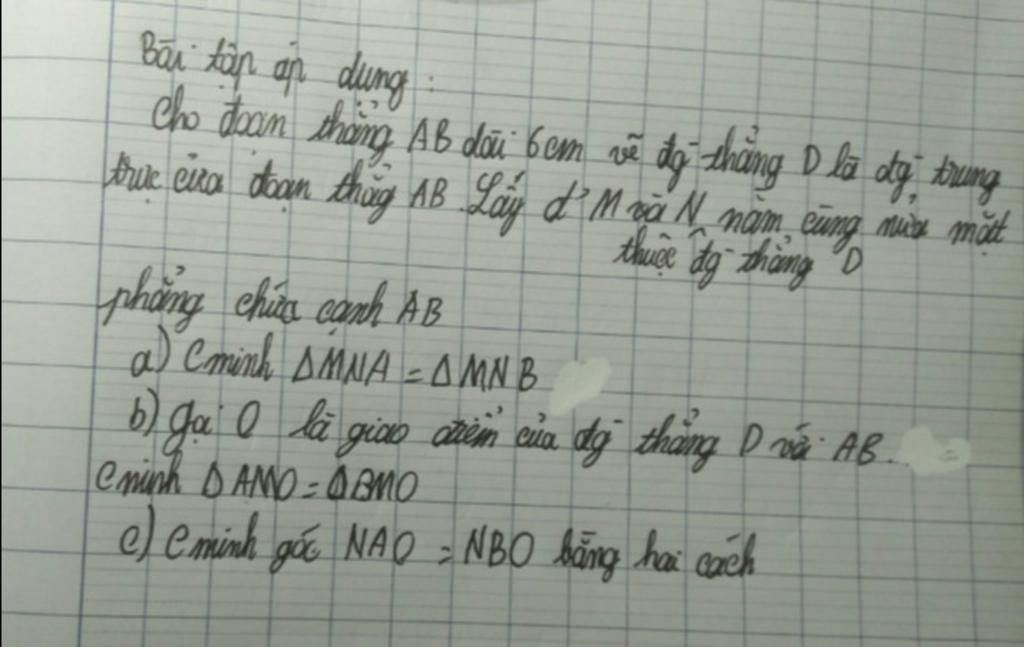 Bài tập áp dụng:
Cho đoạn thẳng AB dài 6cm vẽ đg thẳng D là đg trung
trực của đoạn thẳg AB. Lấy đ' M và N nằm cùng nửa mặt
thuộc đg thẳng D
phẳng chứa cạnh AB
a) Cminh ΔMNA = ΔMNB
b) gọi O là giao điểm của đg thẳng D với AB.
Cminh ΔAMO = ΔBMO
c) Cminh góc NAO = NBO bằng hai cách